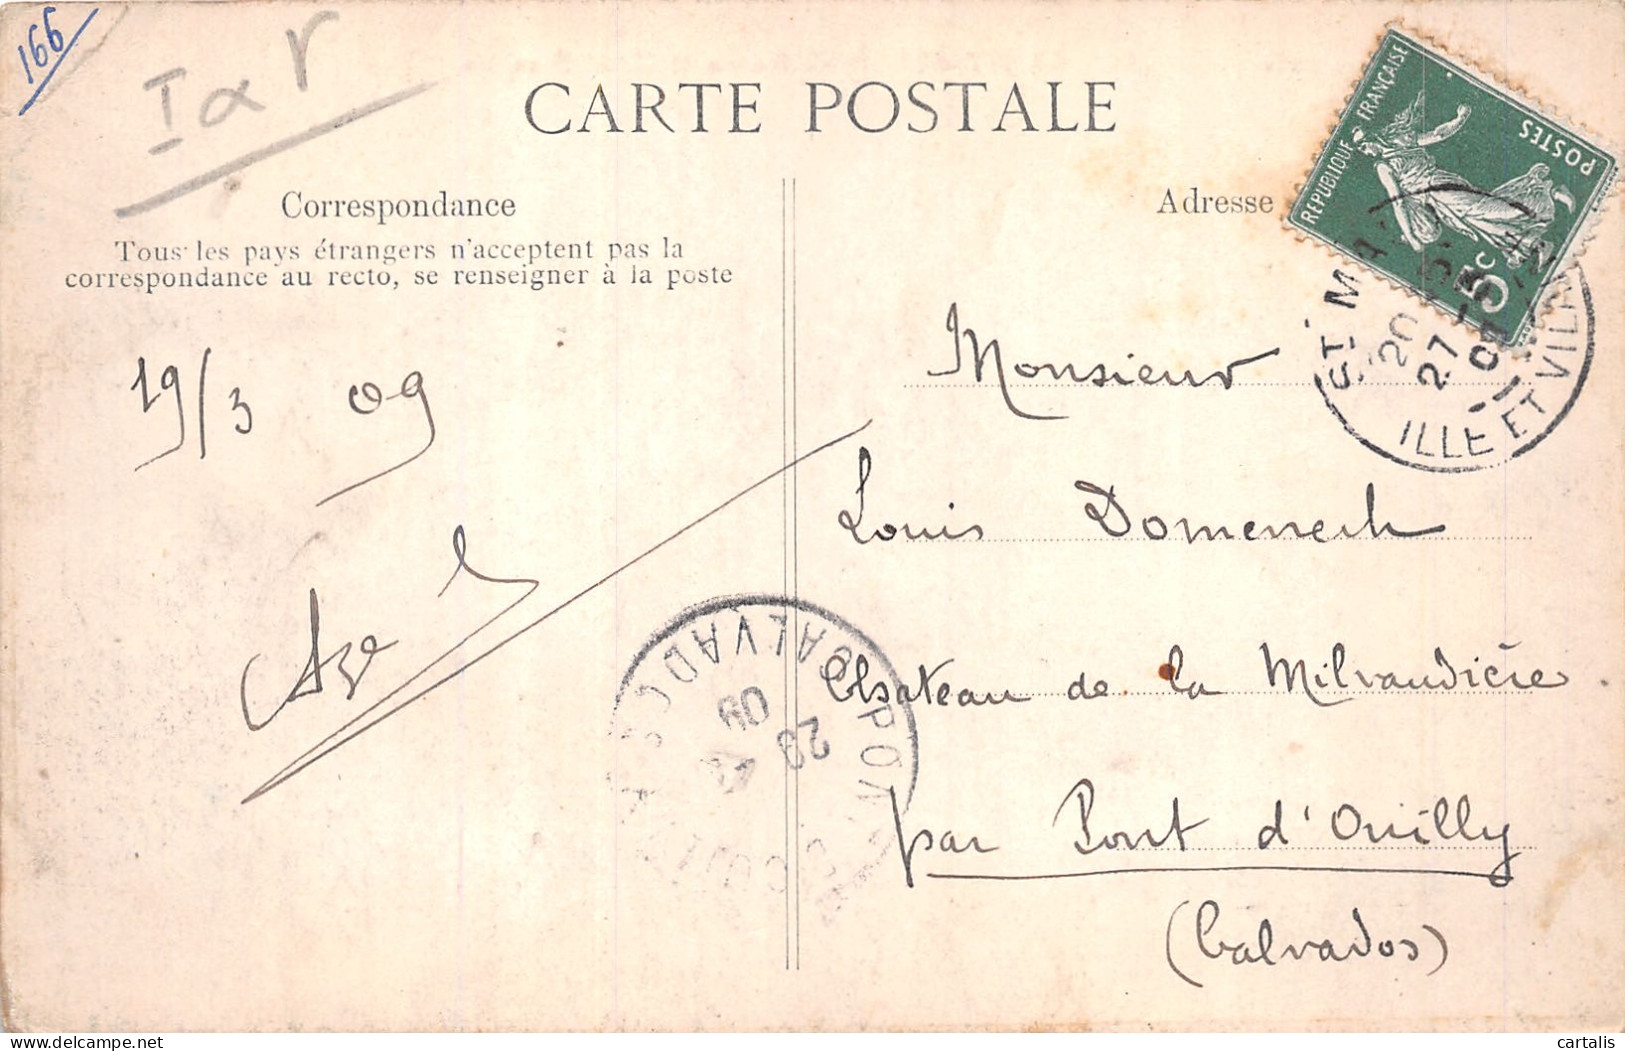 166
I α r
CARTE POSTALE
Correspondance
Tous les pays étrangers n'acceptent pas la
correspondance au recto, se renseigner à la poste
Adresse
RÉPUBLIQUE FRANÇAISE
POSTES
5c
ST MA
20
27 - 3
09
ILLE ET VILAINE
19/3 09
Monsieur
Louis Domenech
Chateau de la Milvaudière.
par Pont d'Ouilly
(Calvados)
CALVADOS
29
09
cartalis
delcampe.net